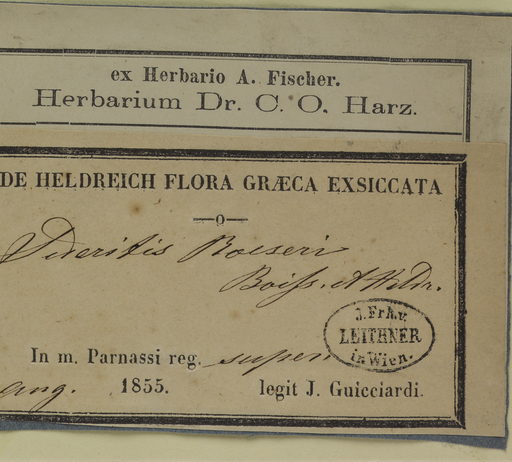 ex Herbario A. Fischer.
Herbarium Dr. C. O. Harz.
DE HELDREICH FLORA GRÆCA EXSICCATA
—o—
Sideritis Roeseri
Boiss. & Heldr.
J. Frh. v.
LEITHNER
in Wien.
In m. Parnassi reg. super
aug. 1855. legit J. Guicciardi.